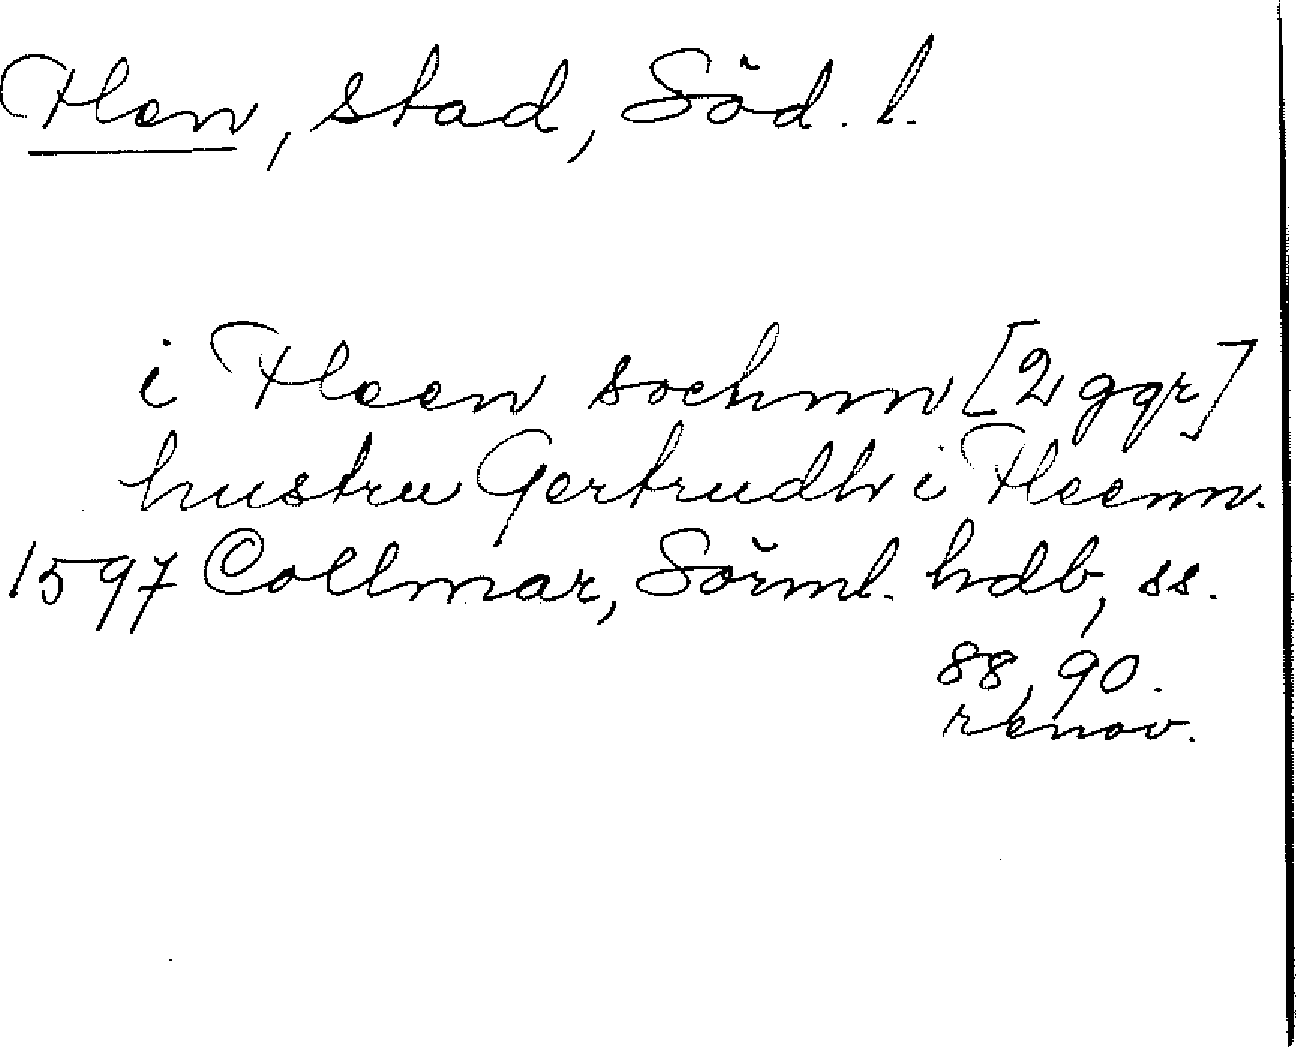 Flen, stad, Söd. l.
i Fleen sochnn [2 ggr]
hustru Gertrudh i Fleenn.
1597 Collmar, Sörml. hdb, ss.
88, 90.
renov.